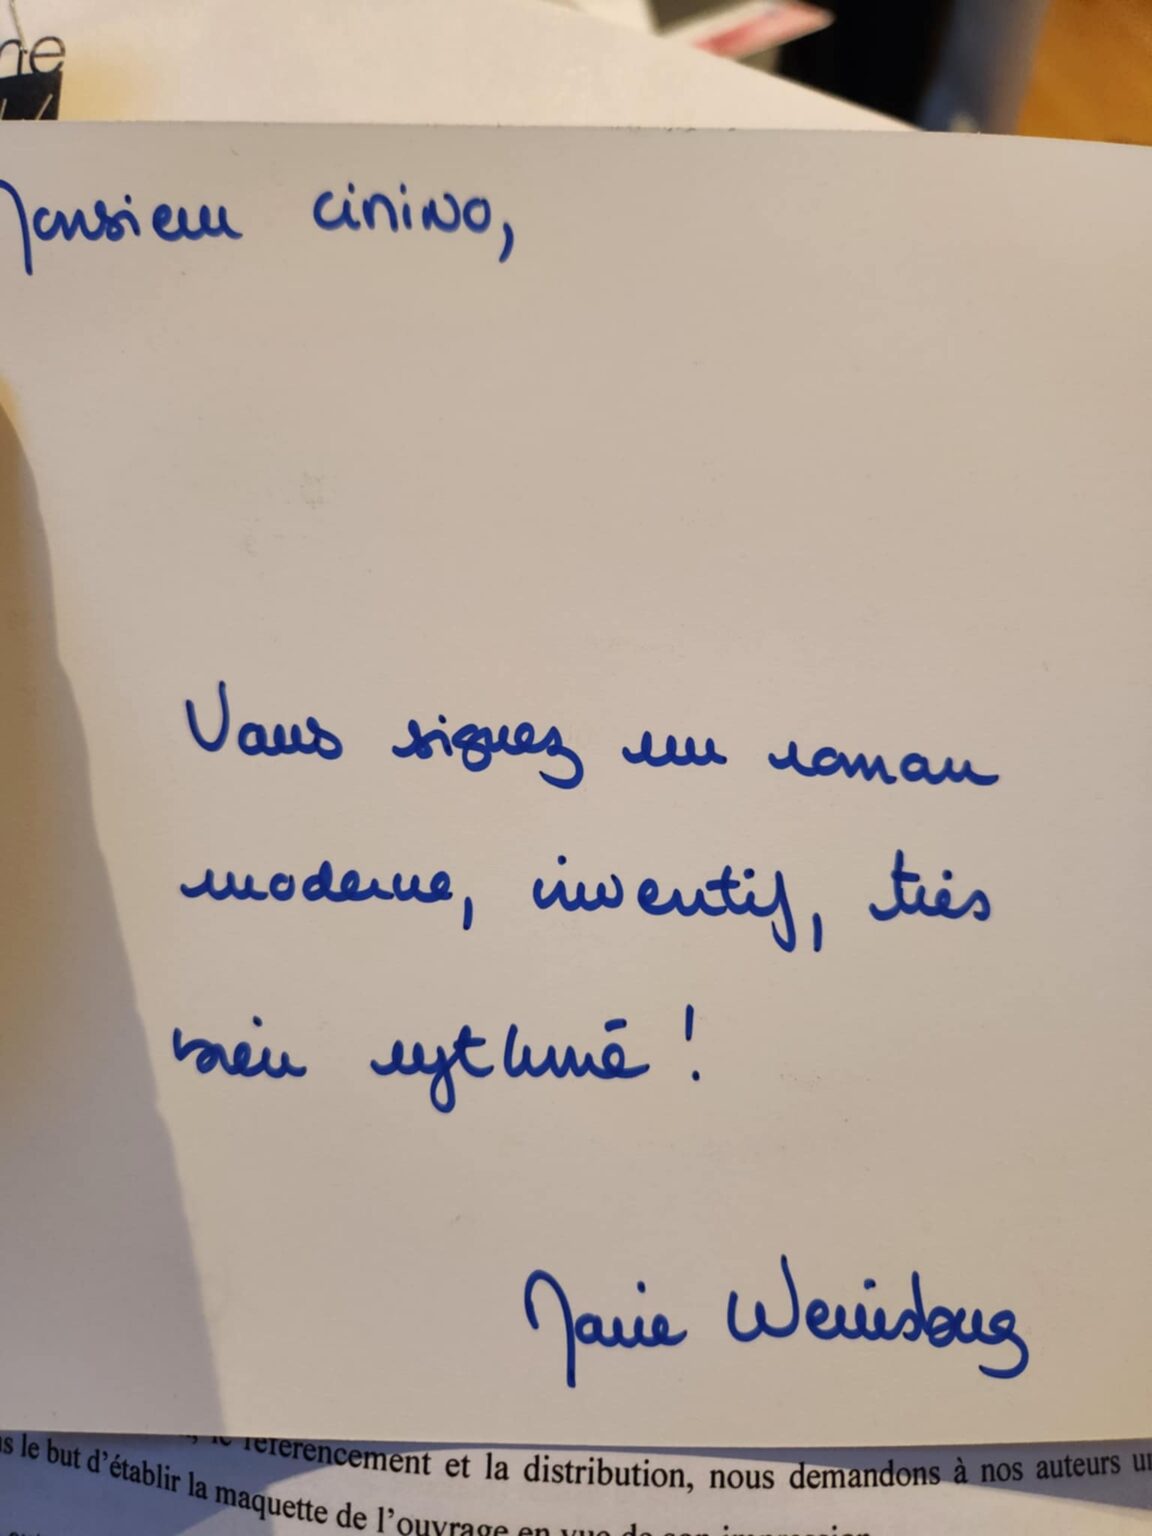 ne
Monsieur Cinino,
Vous signez un roman
moderne, inventif, très
bien rythmé !
Marie
le référencement et la distribution, nous demandons à nos auteurs un
s le but d'établir la maquette de l'ouvrage en vue de son impression